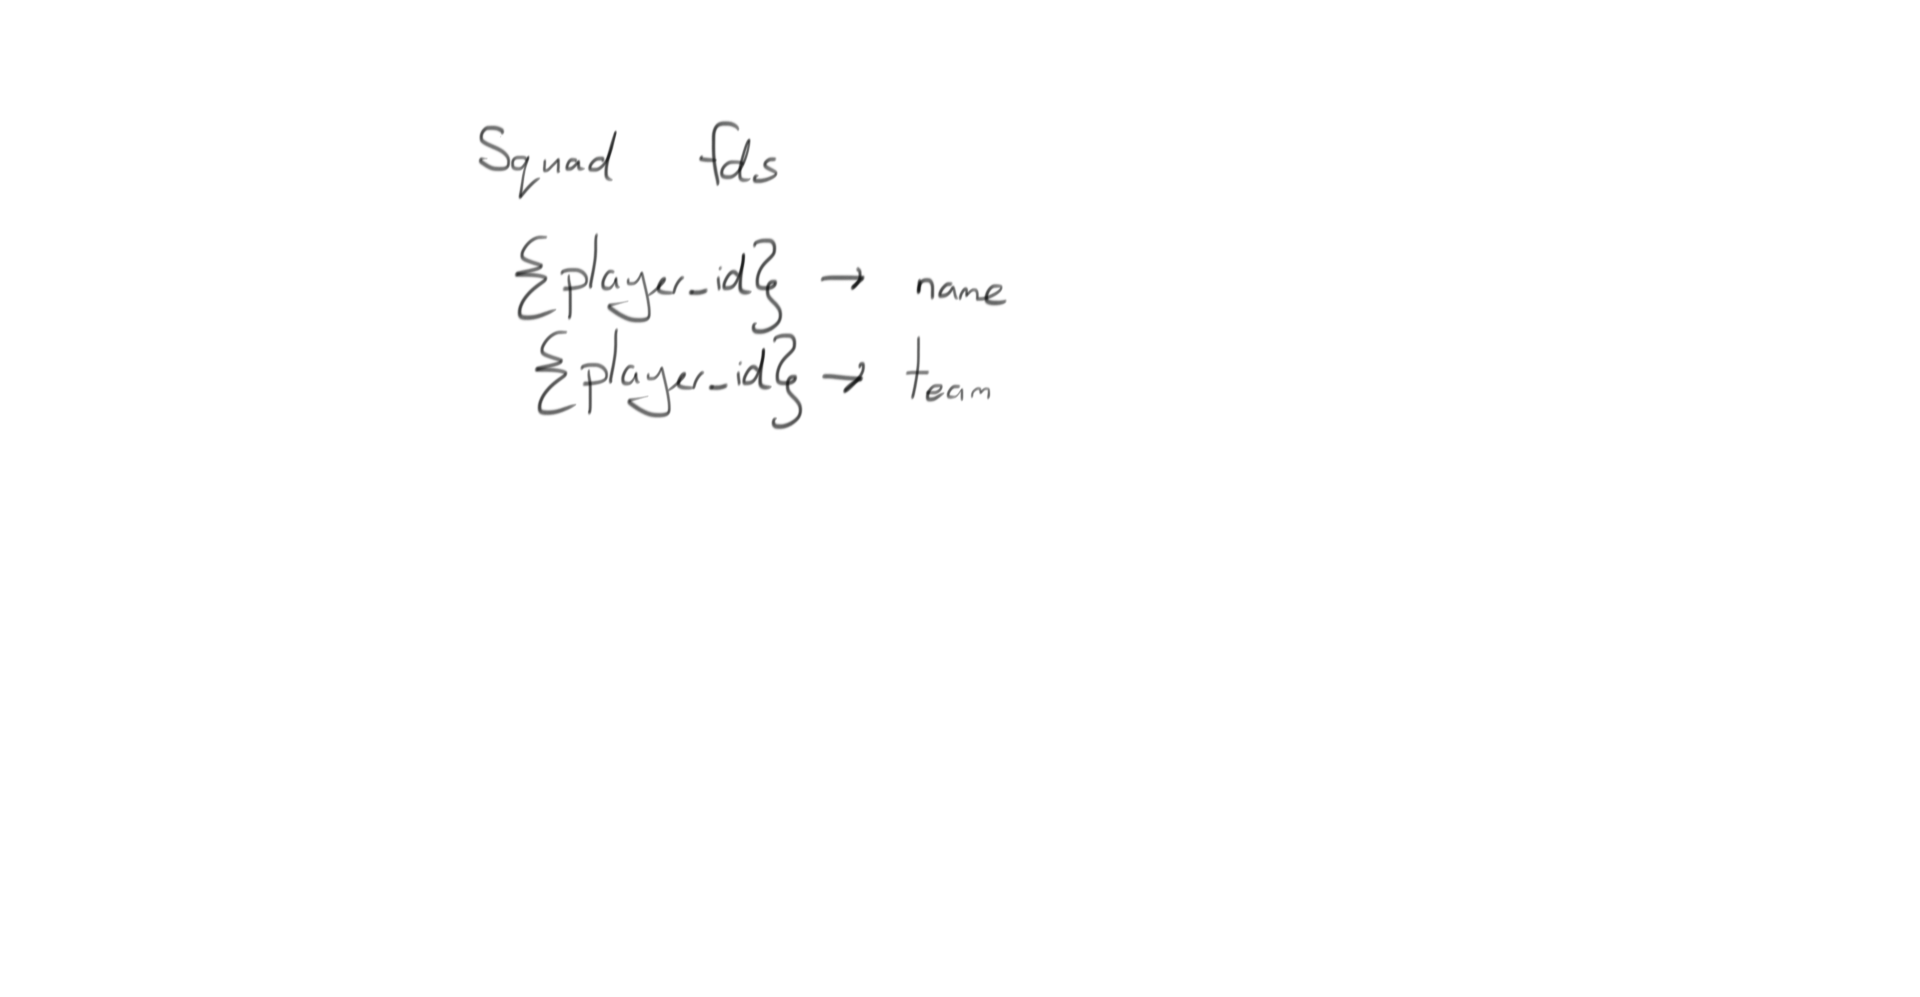 Squad fds
{player_id} → name
{player_id} → team